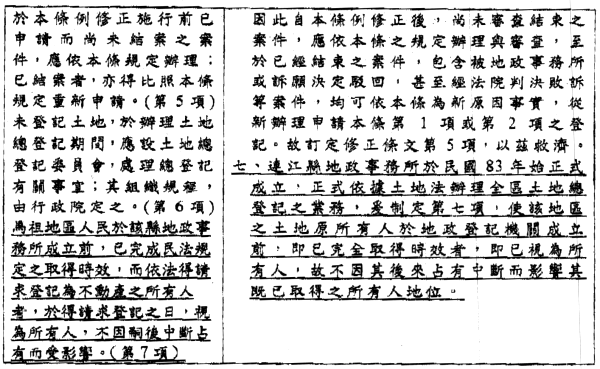 於本條例修正施行前已
申請而尚未結案之案
件，應依本條規定辦理；
已結案者，亦得比照本條
規定重新申請。(第5項)
未登記土地，於辦理土地
總登記期間，應設土地總
登記委員會，處理總登記
有關事宜；其組織規程，
由行政院定之。(第6項)
馬祖地區人民於該縣地政事
務所成立前，已完成民法規
定之取得時效，而依法得請
求登記為不動產之所有人
者，於得請求登記之日，視
為所有人，不因嗣後中斷占
有而受影響。(第7項)
因此自本條例修正後，尚未審查結束之
案件，應依本條之規定辦理與審查，至
於已經結束之案件，包含被地政事務所
或訴願決定駁回，甚至經法院判決敗訴
等案件，均可依本條為新原因事實，從
新辦理申請本條第1項或第2項之登
記。故訂定修正條文第5項，以茲救濟。
七、連江縣地政事務所於民國83年始正式
成立，正式依據土地法辦理全區土地總
登記之業務，爰制定第七項，使該地區
之土地原所有人於地政登記機關成立
前，即已完全取得時效者，即已視為所
有人，故不因其後來占有中斷而影響其
既已取得之所有人地位。